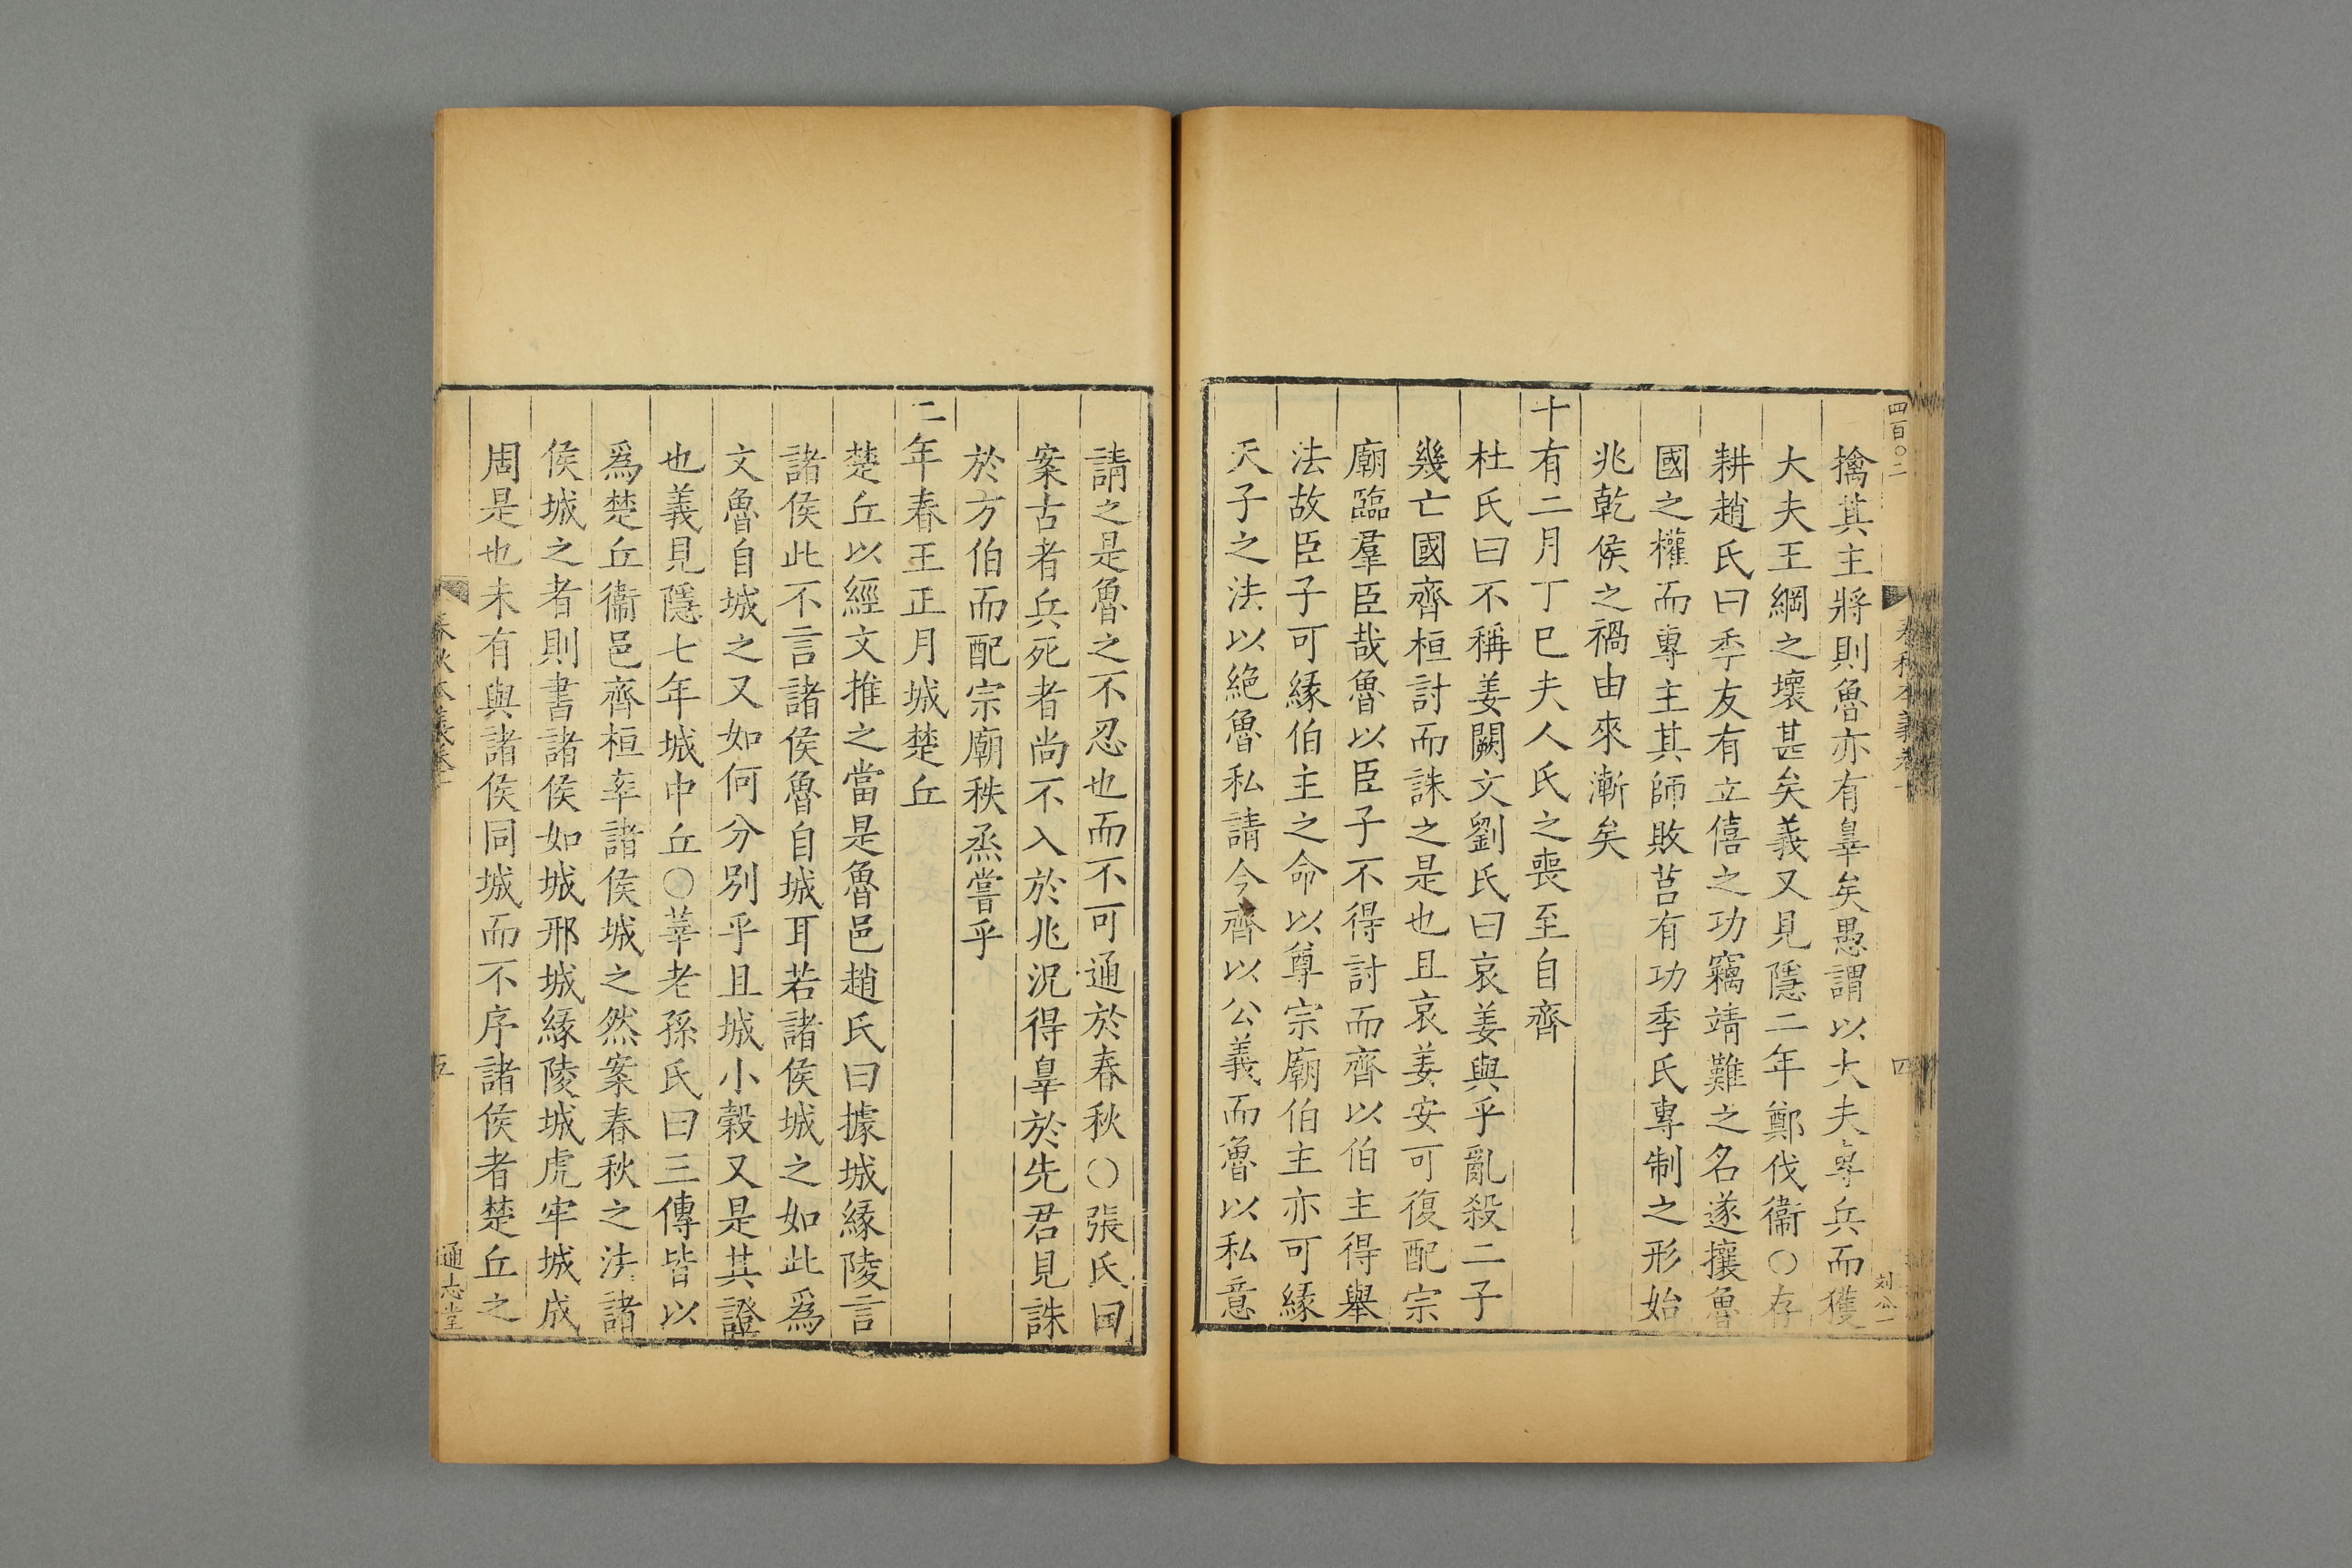 四百〇二
擒其主將則魯亦有辠矣愚謂以大夫專兵而獲
大夫王綱之壞甚矣義又見隱二年鄭伐衞〇存
耕趙氏曰季友有立僖之功竊靖難之名遂攘魯
國之權而專主其師敗莒有功季氏專制之形始
兆乾侯之禍由來漸矣
十有二月丁巳夫人氏之喪至自齊
杜氏曰不稱姜闕文劉氏曰哀姜與乎亂殺二子
幾亡國齊桓討而誅之是也且哀姜安可復配宗
廟臨羣臣哉魯以臣子不得討而齊以伯主得舉
法故臣子可緣伯主之命以尊宗廟伯主亦可緣
天子之法以絕魯私請今齊以公義而魯以私意
請之是魯之不忍也而不可通於春秋〇張氏曰
案古者兵死者尚不入於兆況得辠於先君見誅
於方伯而配宗廟秩烝嘗乎
二年春王正月城楚丘
楚丘以經文推之當是魯邑趙氏曰據城緣陵言
諸侯此不言諸侯魯自城耳若諸侯城之如此爲
文魯自城之又如何分別乎且城小穀又是其證
也義見隱七年城中丘〇莘老孫氏曰三傳皆以
爲楚丘衞邑齊桓率諸侯城之然案春秋之法諸
侯城之者則書諸侯如城邢城緣陵城虎牢城成
周是也未有與諸侯同城而不序諸侯者楚丘之
春秋本義卷十
五
通志堂